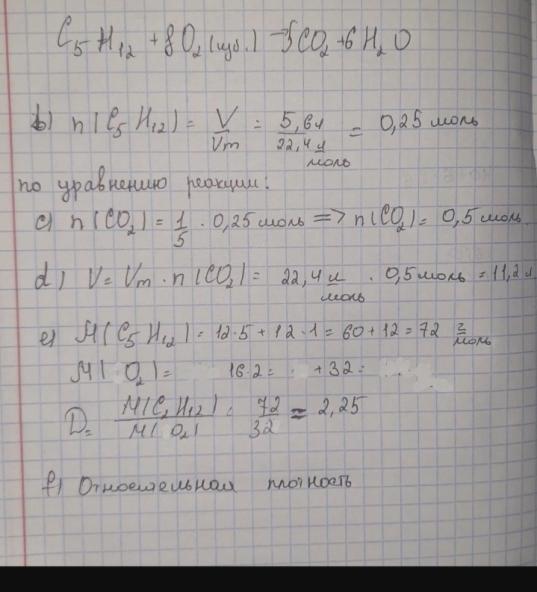 C₅H₁₂ + 8O₂ (изб.) → 5CO₂ + 6H₂O
b) n(C₅H₁₂) = V/Vm = 5,6л / 22,4 л/моль = 0,25 моль
по уравнению реакции:
c) n(CO₂) = 1/5 · 0,25 моль => n(CO₂) = 0,5 моль
d) V = Vm · n(CO₂) = 22,4 л/моль · 0,5 моль = 11,2 л
e) M(C₅H₁₂) = 12·5 + 12·1 = 60 + 12 = 72 г/моль
M( O₂) = 16·2 = + 32 =
D = M(C₅H₁₂) / M( O₂) = 72/32 = 2,25
f) Относительная плотность